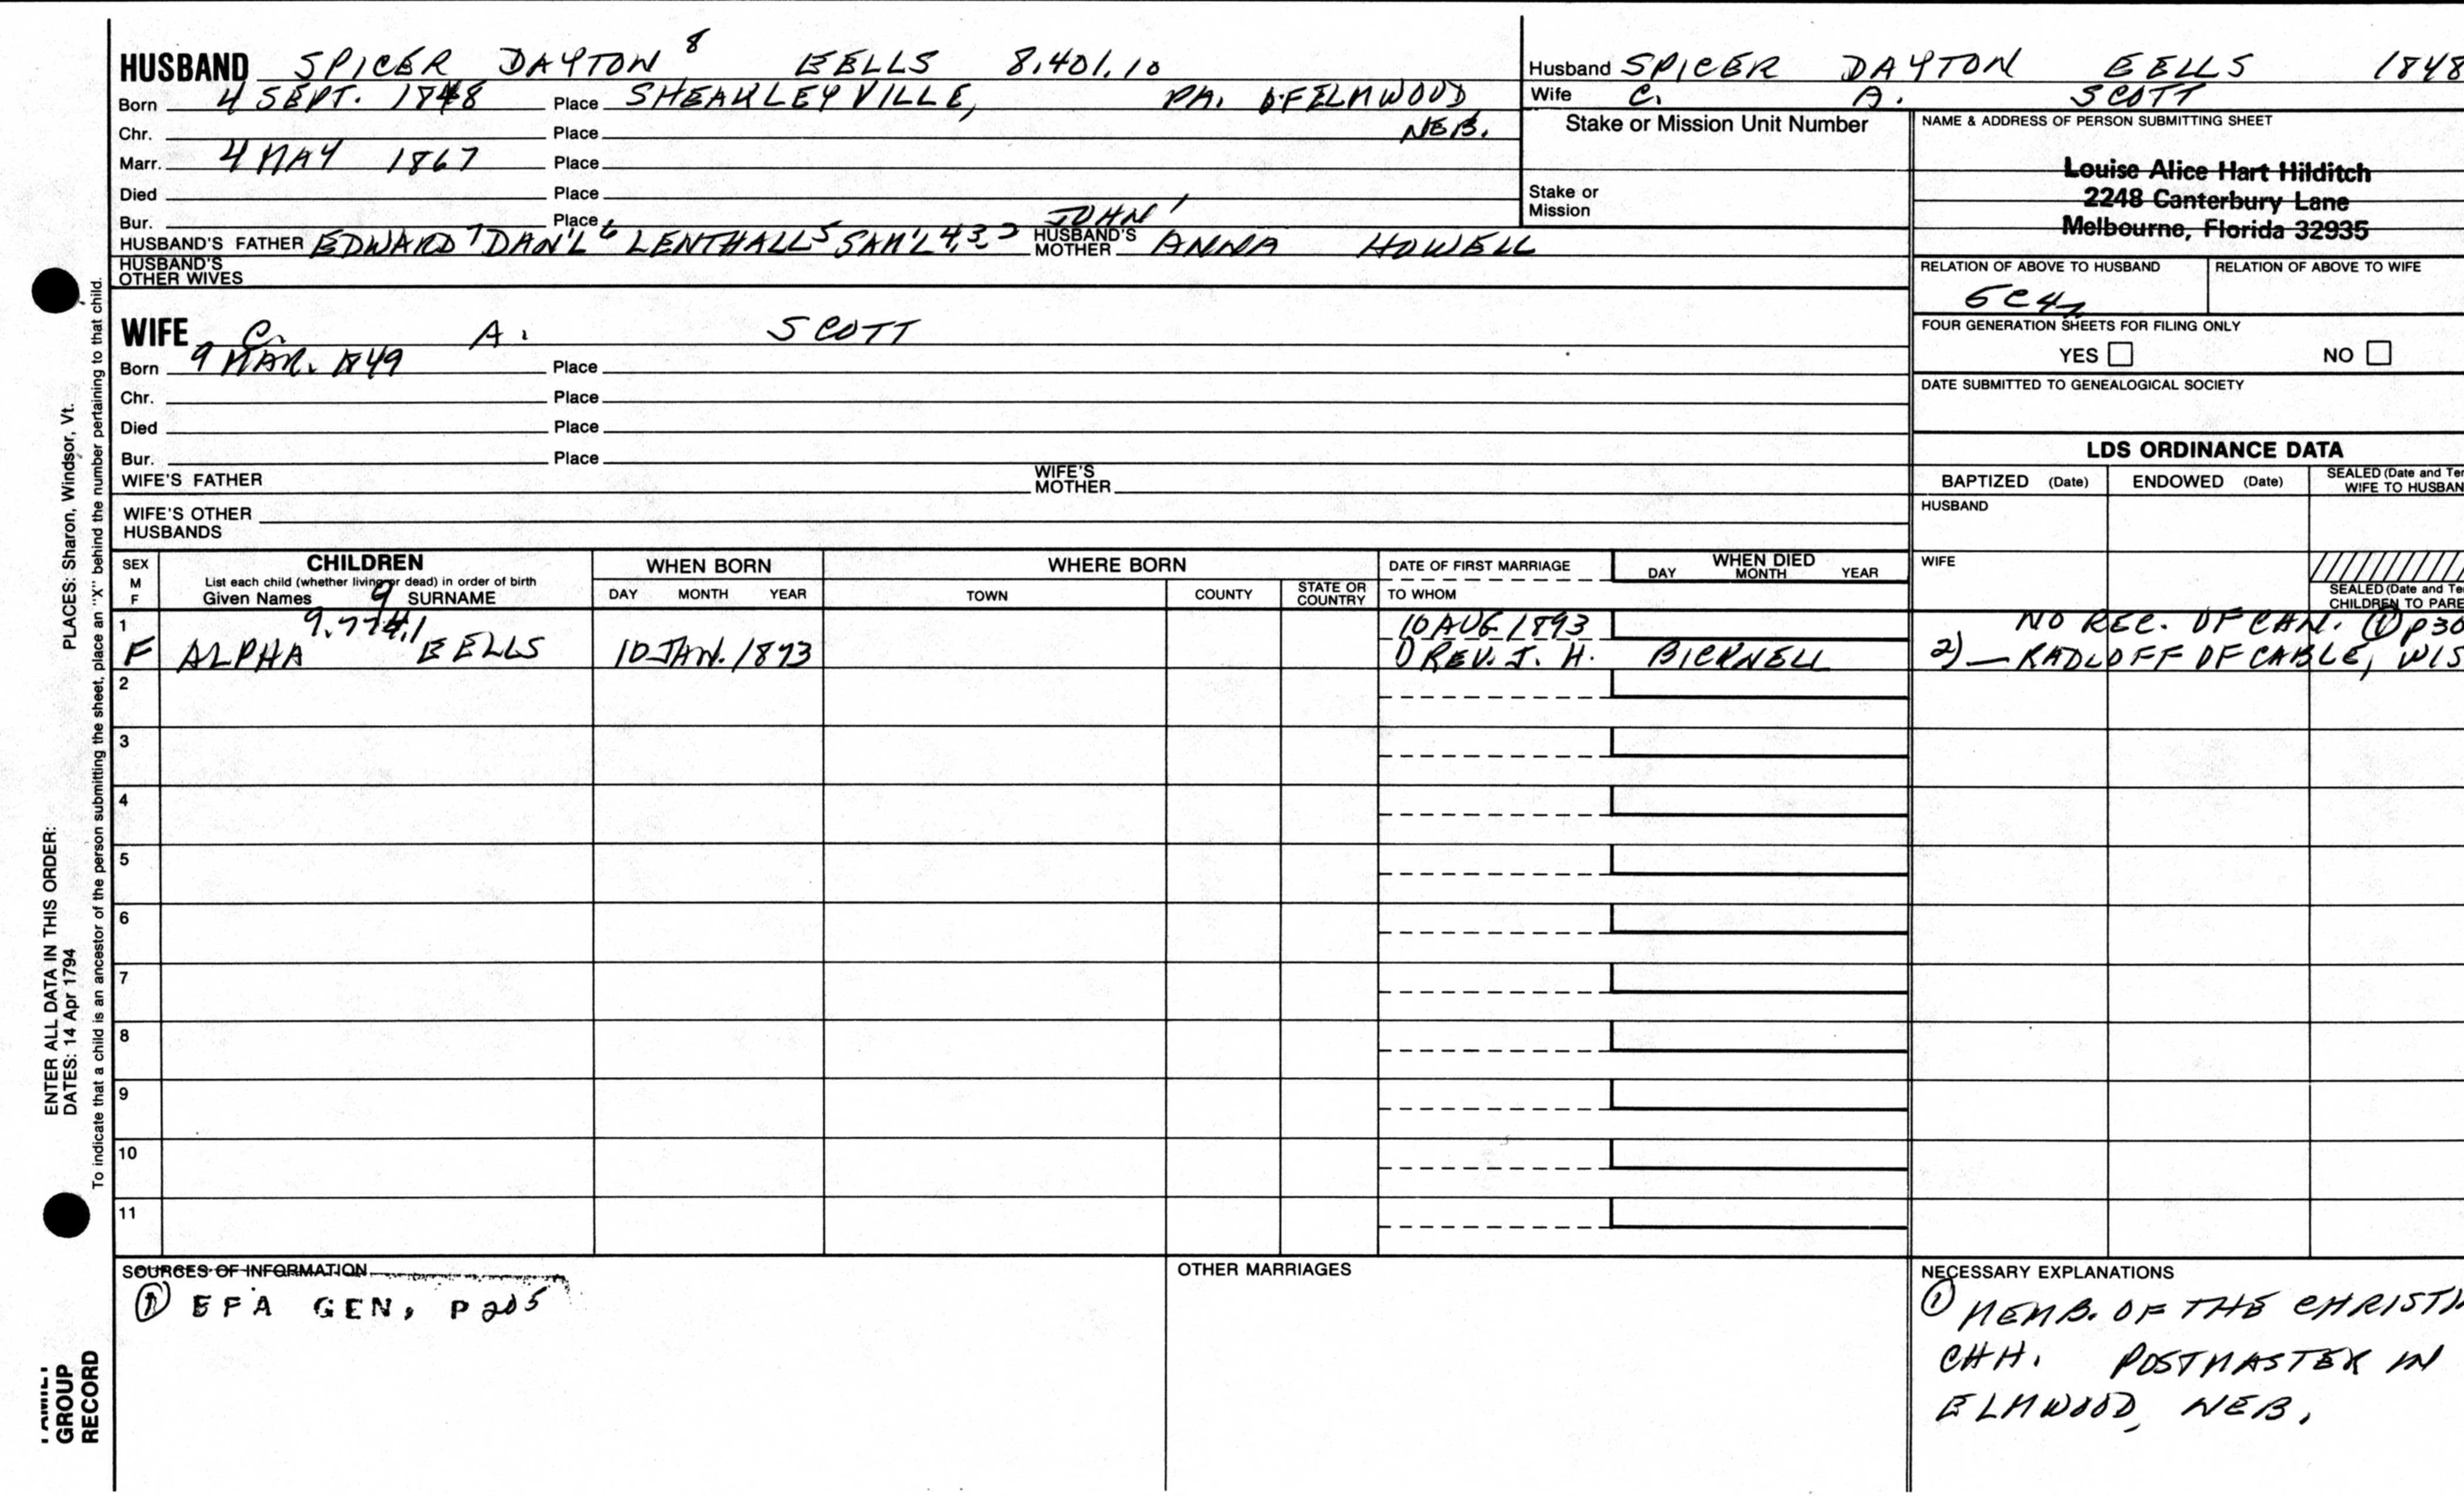 HUSBAND SPICER DAYTON 8 EELLS 8.401.10
Born 4 SEPT. 1848 Place SHEAKLEYVILLE, PA. OF ELMWOOD
Chr. Place NEB.
Marr. 4 MAY 1867 Place
Died Place
Bur. Place JOHN 1
HUSBAND'S FATHER EDWARD 7 DAN'L 6 LENTHALL 5 SAM'L 4,3,2 HUSBAND'S MOTHER ANNA HOWELL
HUSBAND'S OTHER WIVES
WIFE C. A. SCOTT
Born 9 MAR. 1849 Place
Chr. Place
Died Place
Bur. Place
WIFE'S FATHER WIFE'S MOTHER
WIFE'S OTHER HUSBANDS
Husband SPICER DAYTON EELLS 1848
Wife C. A. SCOTT
Stake or Mission Unit Number
Stake or
Mission
NAME & ADDRESS OF PERSON SUBMITTING SHEET
Louise Alice Hart Hilditch
2248 Canterbury Lane
Melbourne, Florida 32935
RELATION OF ABOVE TO HUSBAND RELATION OF ABOVE TO WIFE
FOUR GENERATION SHEETS FOR FILING ONLY
YES NO
DATE SUBMITTED TO GENEALOGICAL SOCIETY
LDS ORDINANCE DATA
BAPTIZED (Date) ENDOWED (Date) SEALED (Date and Te
WIFE TO HUSBAN
HUSBAND
WIFE
SEALED (Date and Te
CHILDREN TO PARE
SEX M F CHILDREN WHEN BORN WHERE BORN DATE OF FIRST MARRIAGE WHEN DIED
List each child (whether living or dead) in order of birth
Given Names 9 SURNAME DAY MONTH YEAR TOWN COUNTY STATE OR COUNTRY TO WHOM DAY MONTH YEAR
1 10 AUG 1893 NO REC. OF CAN. ① P30
F ALPHA EELLS 10 JAN. 1873 1) REV. J. H. BICKNELL 2) — RADLOFF OF CABLE, WIS
2
3
4
5
6
7
8
9
10
11
SOURCES OF INFORMATION
① EFA GEN, P205
OTHER MARRIAGES
NECESSARY EXPLANATIONS
① MEMB. OF THE CHRISTI
CHH. POSTMASTER IN
ELMWOOD, NEB.
PLACES: Sharon, Windsor, Vt.
To indicate that a child is an ancestor of the person submitting the sheet, place an "X" behind the number pertaining to that child.
ENTER ALL DATA IN THIS ORDER:
DATES: 14 Apr 1794
FAMILY
GROUP
RECORD